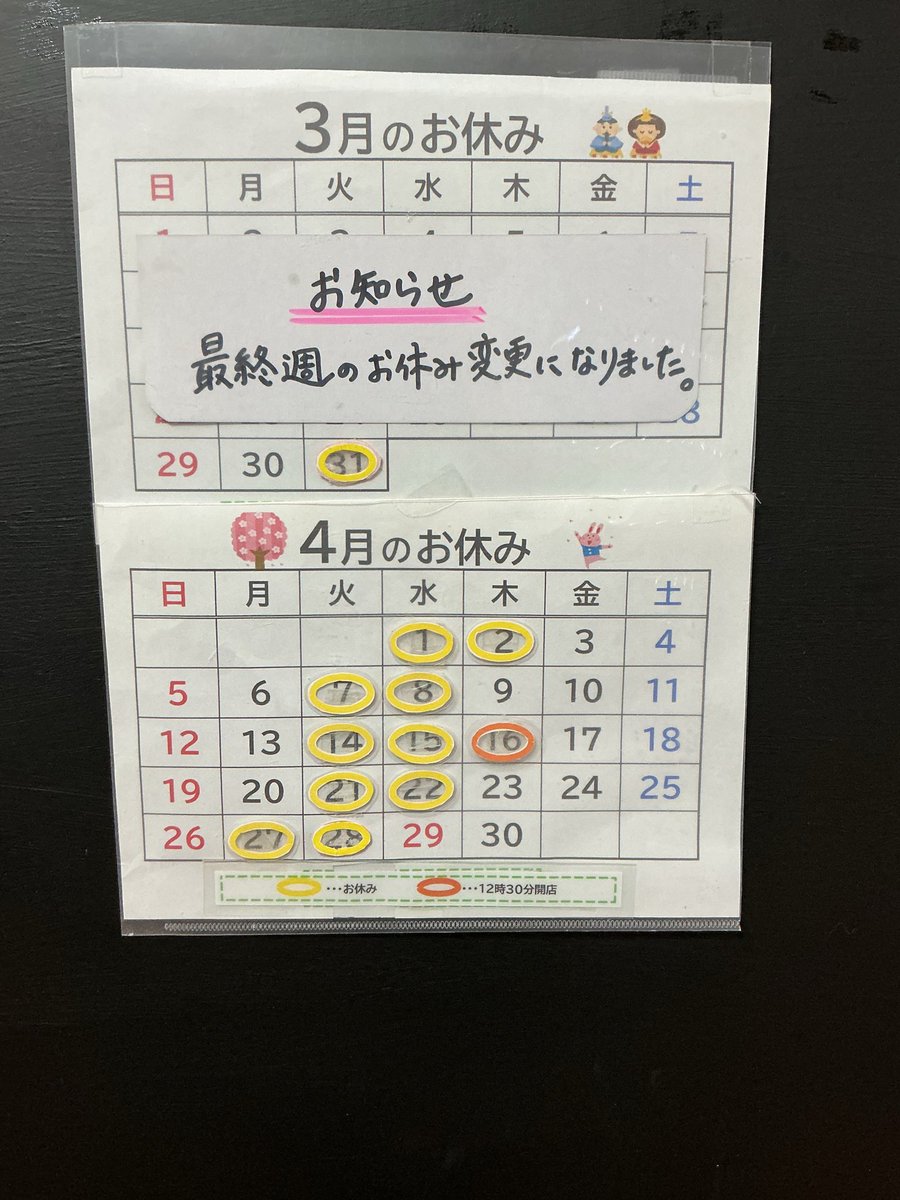 3月のお休み
日 月 火 水 木 金 土
お知らせ
最終週のお休み変更になりました。
29 30 31
4月のお休み
日 月 火 水 木 金 土
1 2 3 4
5 6 7 8 9 10 11
12 13 14 15 16 17 18
19 20 21 22 23 24 25
26 27 28 29 30
…お休み …12時30分開店